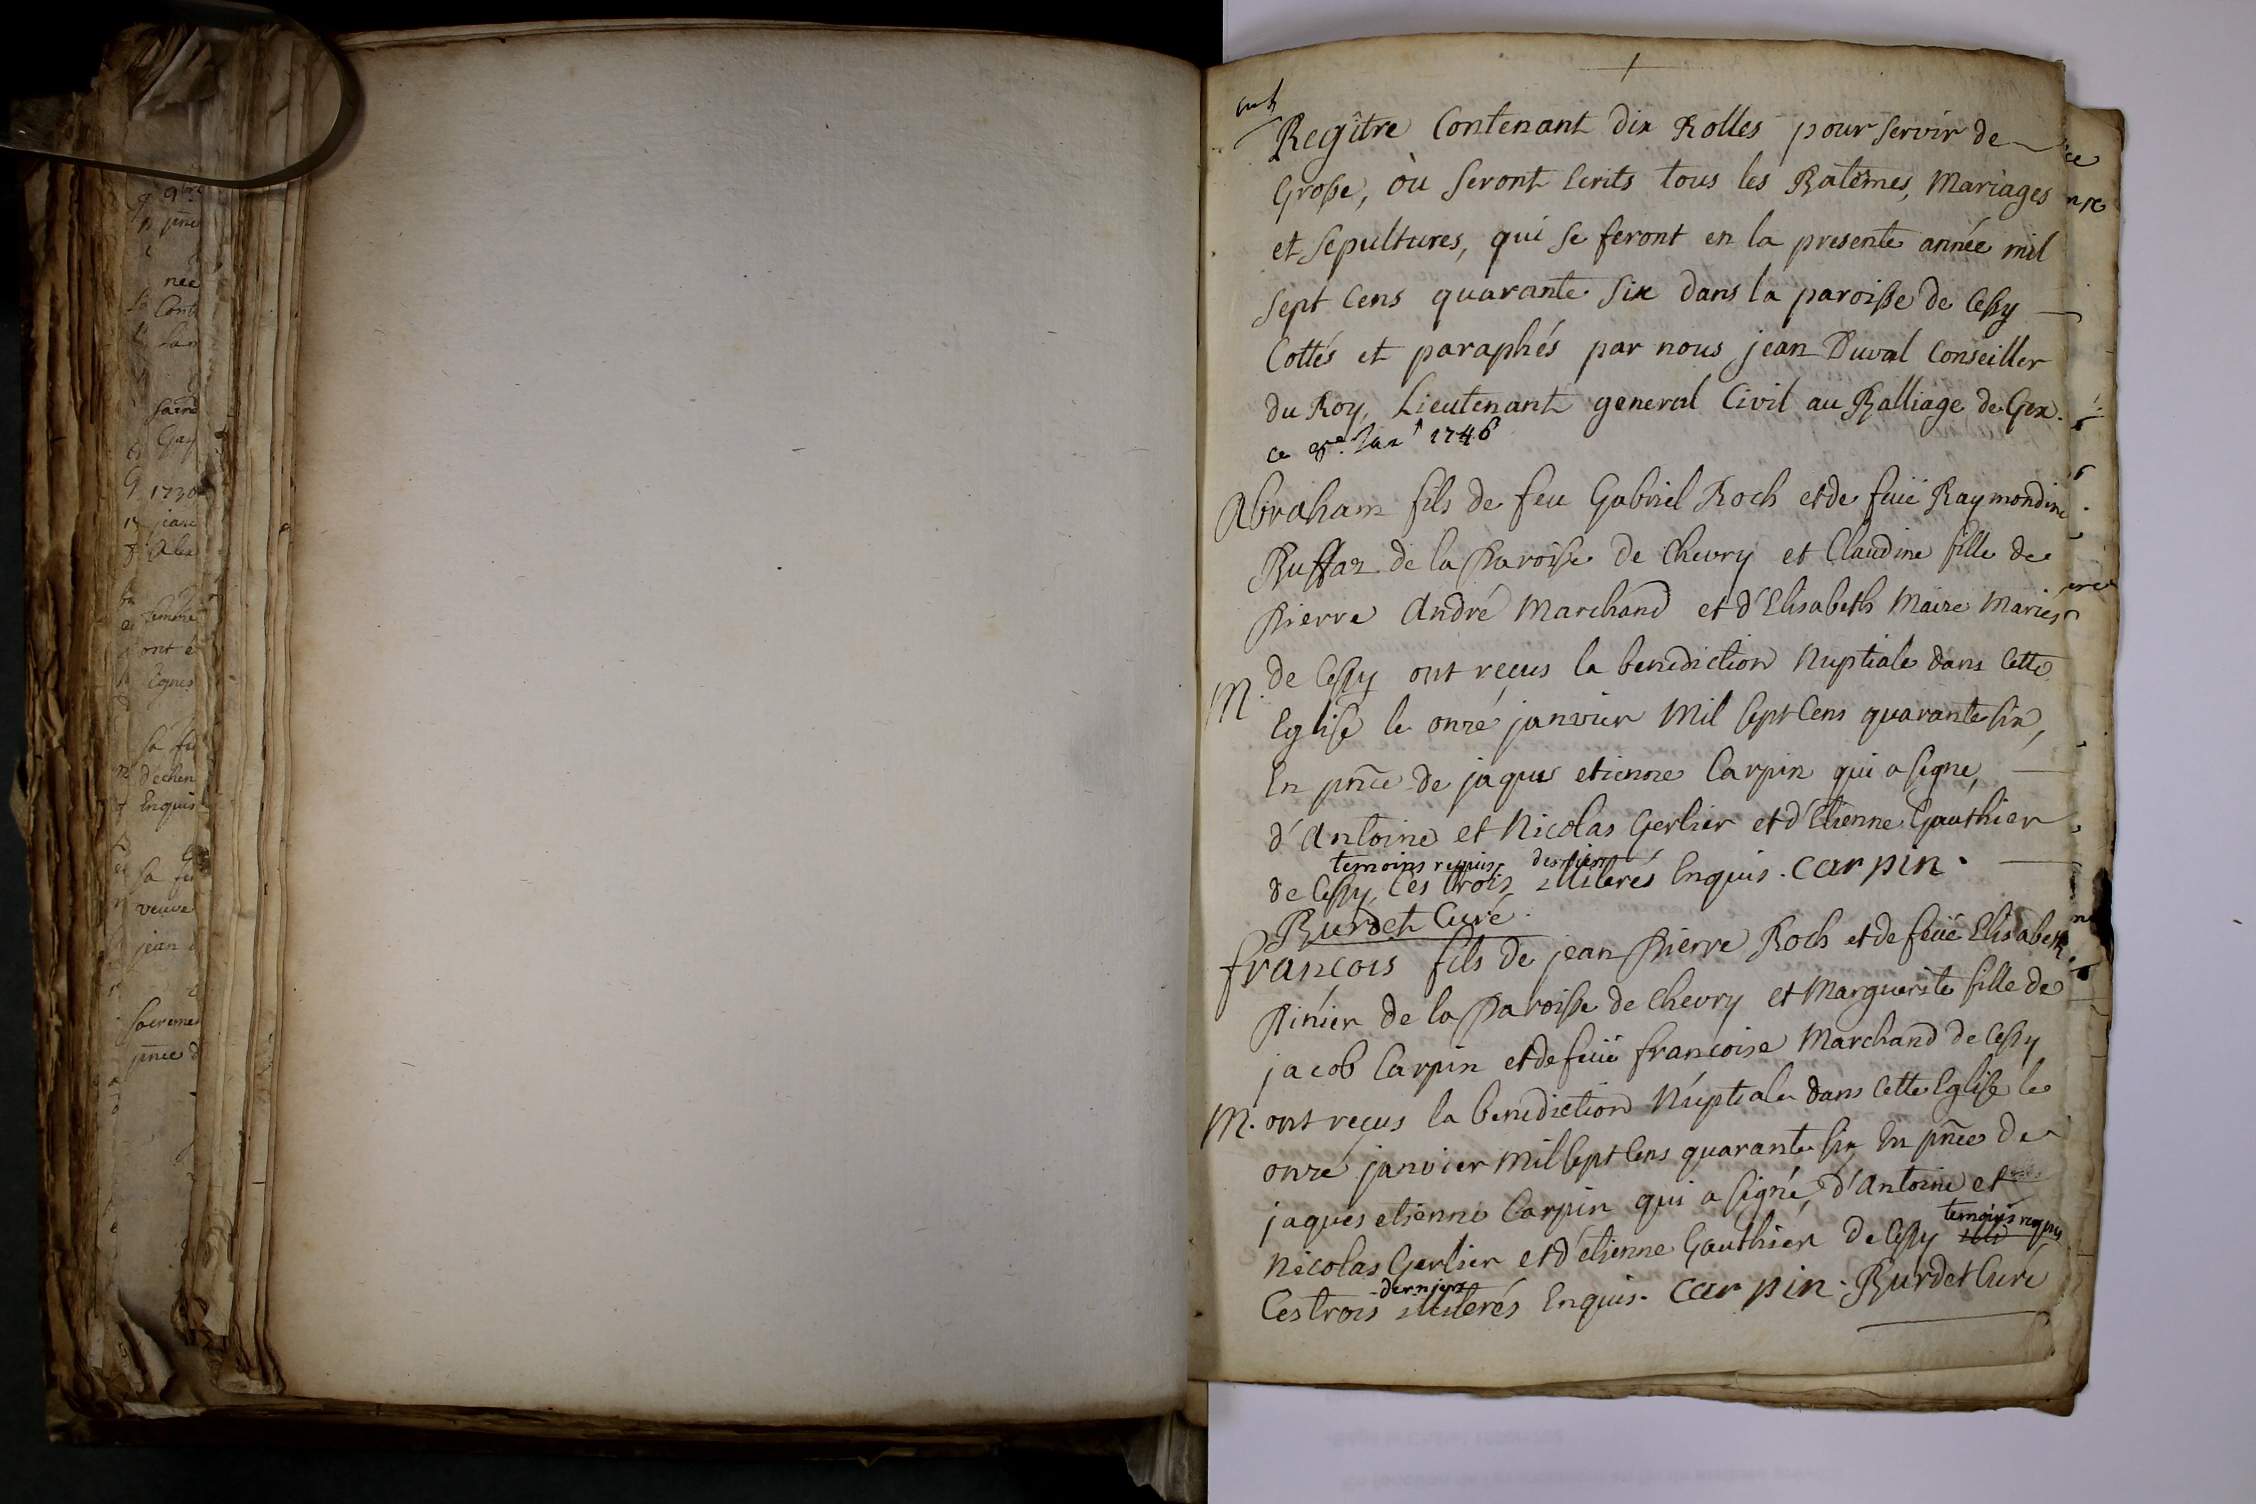 Regître Contenant dix Rolles pour servir de
Grosse, où seront ecrits tous les Batêmes, Mariages
et Sepultures, qui se feront en la presente année mil
sept Cens quarante Six dans la paroisse de Cessy
Cottés et paraphés par nous jean Duval Conseiller
du Roy, Lieutenant general Civil au Balliage de Gex.
ce 1746
Abraham fils de feu Gabriel Roch et de feüe Raymondine
Buffaz de la Paroisse de Chevry et Claudine fille de
Pierre André Marchand et d'Elisabeth Maire Mariés
de Cessy ont reçus la benediction Nuptiale dans Cette
M.
Eglise le onze janvier Mil sept Cens quarante six,
En pñce de jaques etienne Carpin qui a signé,
d'Antoine et Nicolas Gerlier et d'Etienne Gauthier
temoins requis derniers
de Cessy, Ces trois illiterés Enquis. Carpin.
Burdet Curé.
françois fils de jean Pierre Roch et de feüe Elisabeth
Pinier de la Paroisse de Chevry et Marguerite fille de
jacob Carpin et de feüe françoise Marchand de Cessy
M. ont reçus la benediction Nuptiale dans Cette Eglise le
onze janvier mil sept Cens quarante six En pñce de
jaques etienne Carpin qui a signé, d'Antoine et
temoins requis
Nicolas Gerlier et d'etienne Gauthier de Cessy
derniers
Ces trois illiterés Enquis. Carpin. Burdet Curé